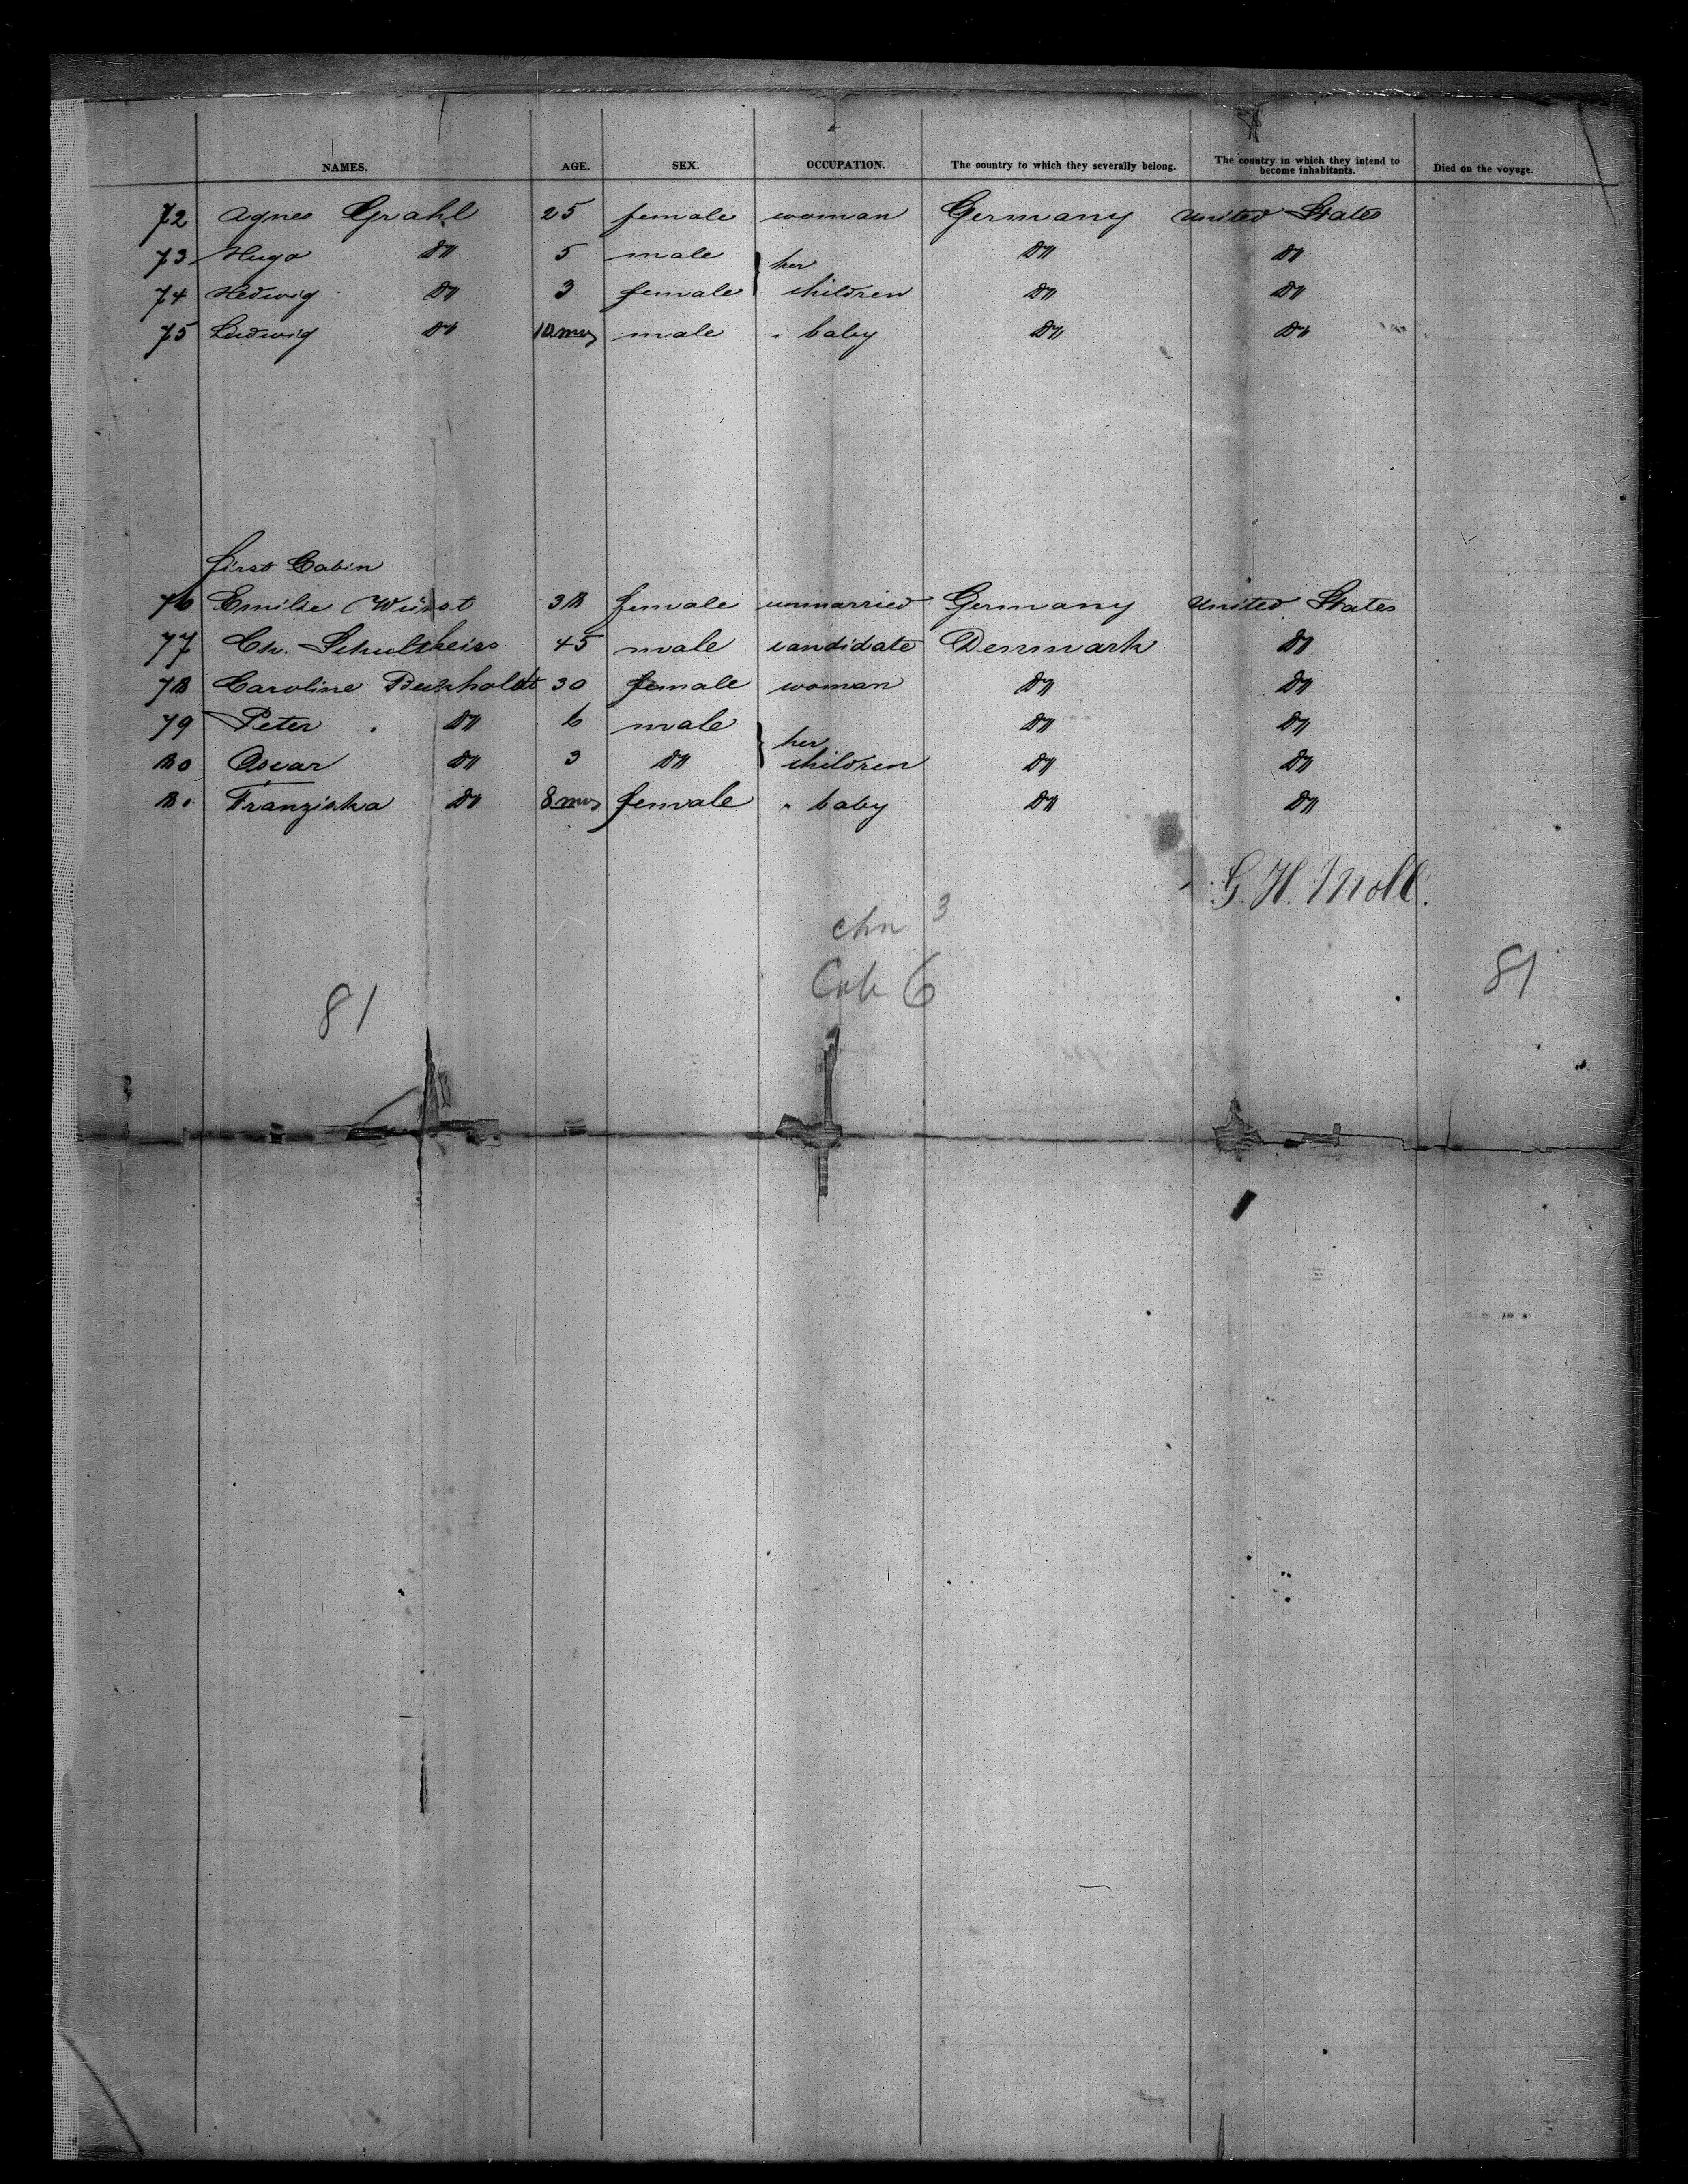 NAMES. AGE. SEX. OCCUPATION. The country to which they severally belong. The country in which they intend to become inhabitants. Died on the voyage.
72 Agnes Grahl 25 female woman Germany United States
73 Hugo Do 5 male her Do Do
74 Hedwig Do 3 female children Do Do
75 Ludwig Do 10 mos male " baby Do Do
first Cabin
76 Emilie Würst 38 female unmarried Germany United States
77 Ch. Schultheiss 45 male candidate Denmark Do
78 Caroline 30 female woman Do Do
79 Peter Do 6 male her Do Do
80 Oscar Do 3 Do children Do Do
81 Franziska Do 8 mos female " baby Do Do
G. H. Moll.
chn 3
Cab 6
81
81